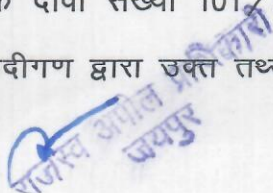 दावा संख्या 101
दीगण द्वारा उक्त तथ
राजस्व अपील प्राधिकारी
जयपुर